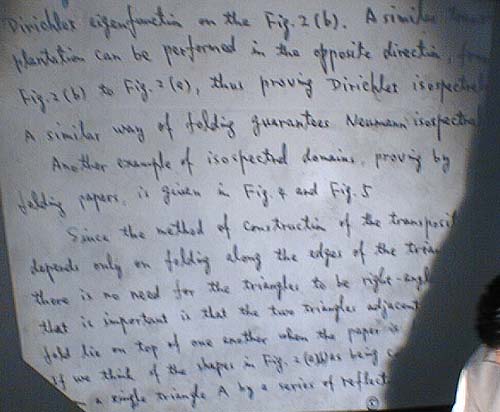 Dirichlet eigenfunction on the Fig. 2 (b). A similar
plantation can be performed in the opposite direction,
Fig. 2 (b) to Fig. 2 (a), thus proving Dirichlet isospectral
A similar way of folding guarantees Neumann isospectra
Another example of isospectral domains, proving by
folding papers, is given in Fig 4 and Fig. 5
Since the method of construction of the transposit
depends only on folding along the edges of the trian
there is no need for the triangles to be right-angl
that is important is that the two triangles adjacent
fold lie on top of one another when the paper is
If we think of the shapes in Fig. 2 as being
a single triangle A by a series of reflect